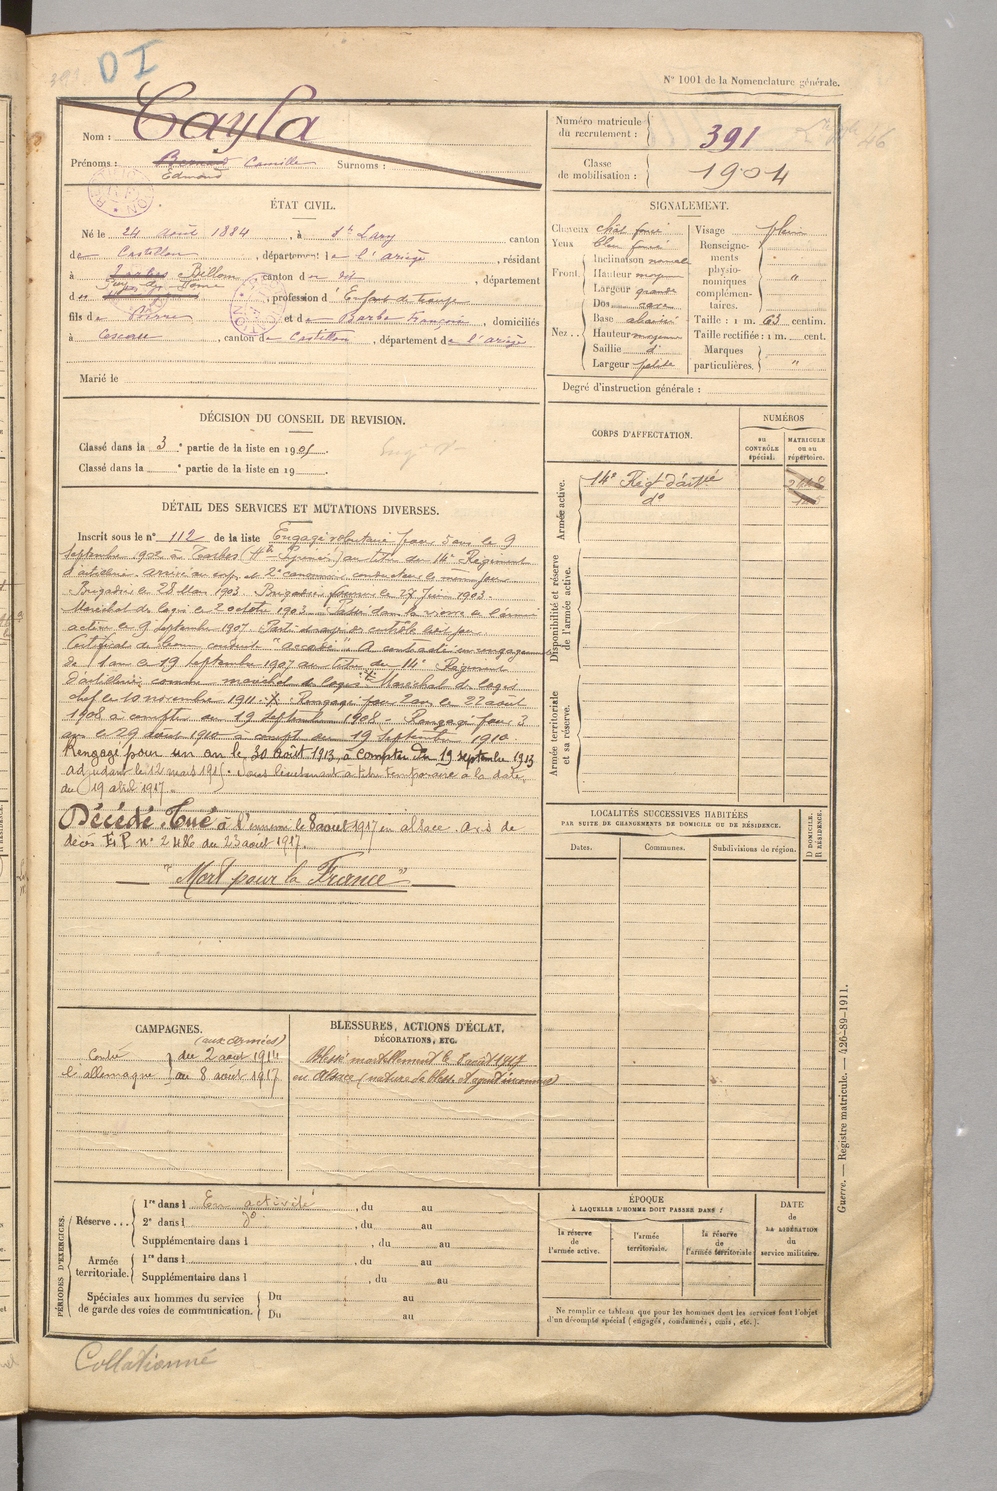 D I
N° 1001 de la Nomenclature générale.
Nom : Cayla
Prénoms : Bernard Camille Surnoms :
Edmond
Numéro matricule du recrutement : 391
Classe de mobilisation : 1904
ÉTAT CIVIL.
Né le 24 août 1884, à St Lary, canton
de Castillon, département de l'ariège, résidant
à Tarbes Billom, canton de dt, département
d Puy de Dome, profession d'Enfant de troupe
fils de Pierre et de Barbe Françoise, domiciliés
à, canton de Castillon, département de l'ariège
Marié le
SIGNALEMENT.
Cheveux chât foncé
Yeux bleu foncé
Front
Inclinaison normale
Hauteur moy
Largeur grande
Nez
Dos cave
Base abaissé
Hauteur moyenne
Saillie d°
Largeur petite
Visage plein
Renseignements physionomiques complémentaires. "
Taille : 1 m. 63 centim.
Taille rectifiée : 1 m. cent.
Marques particulières. "
Degré d'instruction générale :
DÉCISION DU CONSEIL DE REVISION.
Classé dans la 3e partie de la liste en 1905.
Classé dans la e partie de la liste en 19 .
CORPS D'AFFECTATION.
NUMÉROS
au CONTRÔLE spécial.
MATRICULE ou au répertoire.
Armée active.
14e Régt d'artie
d°
Disponibilité et réserve de l'armée active.
Armée territoriale et sa réserve.
DÉTAIL DES SERVICES ET MUTATIONS DIVERSES.
Inscrit sous le n° 112 de la liste Engagé volontaire pour 5 ans le 9
septembre 902 à Tarbes (Htes Pyrénées) au titre du 14e Régiment
d'artillerie. arrivé au corps et 2e canonnier conducteur le même jour
Brigadier le 28 Mars 1903. Brigadier fourrier le 27 Juin 1903.
Maréchal des logis le 2 octobre 1903. Passé dans la réserve de l'armée
active le 9 septembre 1907.
Certificat de bonne conduite "accordé". A contracté un engagement
de 1 an le 19 septembre 1907 au titre du 14e Régiment
d'artillerie comme maréchal des logis. Maréchal des logis
chef le 10 novembre 1911. X. Rengagé pour 2 ans le 22 août
1908 à compter du 19 septembre 1908. Rengagé pour 3
ans le 29 août 1910 à compter du 19 septembre 1910.
Rengagé pour un an le 30 août 1913, à compter du 19 septembre 1913
adjudant le 12 mars 1915. Sous lieutenant à titre temporaire à la date
du 19 avril 1917.
Décédé. Tué à l'ennemi le 8 aout 1917 en alsace. avis de
décès n° 2486 du 23 aout 1917.
"Mort pour la France"
LOCALITÉS SUCCESSIVES HABITÉES
PAR SUITE DE CHANGEMENTS DE DOMICILE OU DE RÉSIDENCE.
Dates.
Communes.
Subdivisions de région.
D DOMICILE.
R RÉSIDENCE.
CAMPAGNES.
(aux armées)
Contre du 2 aout 1914
l'allemagne au 8 août 1917
BLESSURES, ACTIONS D'ÉCLAT,
DÉCORATIONS, ETC.
blessé mortellement le 8 août 1917
en Alsace (nature de bless. et agent inconnus)
PÉRIODES D'EXERCICES.
Réserve...
1re dans l En activité, du au
2e dans l d°, du au
Supplémentaire dans l , du au
Armée territoriale.
1re dans l , du au
Supplémentaire dans l , du au
Spéciales aux hommes du service de garde des voies de communication.
Du au
Du au
ÉPOQUE
À LAQUELLE L'HOMME DOIT PASSER DANS :
la réserve de l'armée active.
l'armée territoriale.
la réserve de l'armée territoriale
DATE de LA LIBÉRATION du service militaire.
Ne remplir ce tableau que pour les hommes dont les services font l'objet
d'un décompte spécial (engagés, condamnés, omis, etc.).
Guerre. — Registre matricule. — 426-89-1911.
Collationné